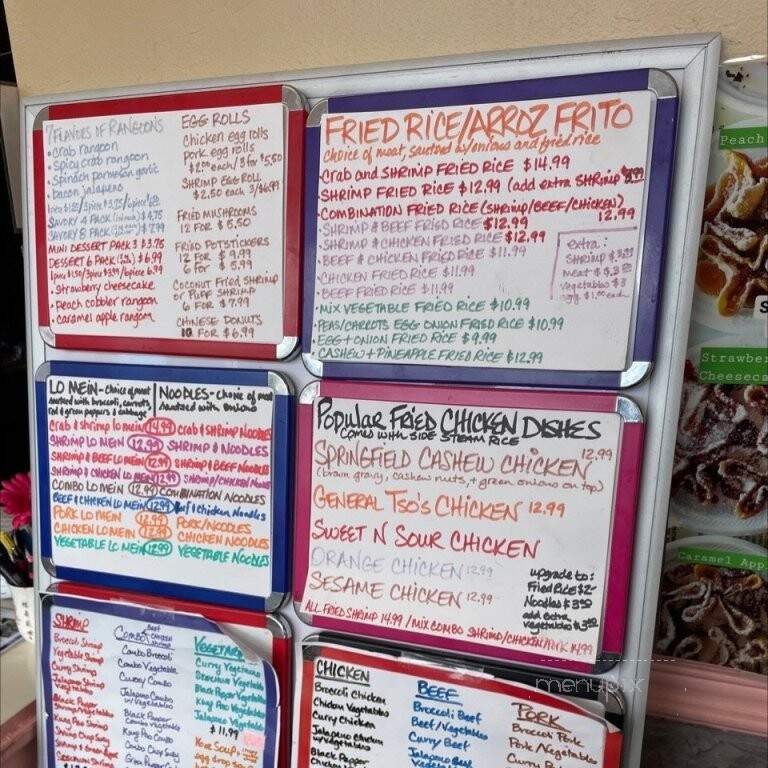 7 FLAVORS OF RANGOONS
• crab rangoon
• spicy crab rangoon
• spinach parmesan garlic
• bacon jalapeno
SAVORY 4 PACK $4.75
SAVORY 8 PACK
MINI DESSERT PACK 3 $3.75
DESSERT 6 PACK $6.99
• Strawberry cheesecake
• Peach cobbler rangoon
• caramel apple rangoon
EGG ROLLS
Chicken egg rolls
pork egg rolls
$2.00 each/3 for $5.50
SHRIMP EGG ROLL
$2.50 each 3/$6.99
FRIED MUSHROOMS
12 FOR $5.50
FRIED POTSTICKERS
12 FOR $9.99
6 FOR $5.99
COCONUT FRIED SHRIMP
OR PUFF SHRIMP
6 FOR $7.99
CHINESE DONUTS
10 FOR $6.99
FRIED RICE/ARROZ FRITO
choice of meat, sauteed w/onions and fried rice
• Crab and SHRIMP FRIED RICE $14.99
• SHRIMP FRIED RICE $12.99 (add extra SHRIMP
• COMBINATION FRIED RICE (SHRIMP/BEEF/CHICKEN) 12.99
• SHRIMP & BEEF FRIED RICE $12.99
• SHRIMP & CHICKEN FRIED RICE $12.99
• BEEF & CHICKEN FRIED RICE $11.99
• CHICKEN FRIED RICE $11.99
• BEEF FRIED RICE $11.99
• MIX VEGETABLE FRIED RICE $10.99
• PEAS/CARROTS EGG ONION FRIED RICE $10.99
• EGG + ONION FRIED RICE $9.99
• CASHEW + PINEAPPLE FRIED RICE $12.99
extra:
Shrimp
Meat
Vegetables $3
egg $1.00 each
LO MEIN - choice of meat
sauteed with broccoli, carrots,
red & green peppers & cabbage
NOODLES - choice of meat
sauteed with onions
Crab & shrimp lo mein 14.99 crab & SHRIMP NOODLES
SHRIMP LO MEIN 12.99 SHRIMP & NOODLES
SHRIMP & BEEF LO MEIN 12.99 SHRIMP & BEEF NOODLES
SHRIMP & CHICKEN LO MEIN 12.99 SHRIMP/CHICKEN NOODLES
COMBO LO MEIN 12.99 COMBINATION NOODLES
BEEF & CHICKEN LO MEIN 12.99 Beef & Chicken Noodles
PORK LO MEIN 12.99 PORK/NOODLES
CHICKEN LO MEIN 12.99 CHICKEN NOODLES
VEGETABLE LO MEIN 12.99 VEGETABLE NOODLES
POPULAR FRIED CHICKEN DISHES
comes with SIDE STEAM RICE
SPRINGFIELD CASHEW CHICKEN 12.99
(brown gravy, cashew nuts, + green onions on top)
GENERAL TSO'S CHICKEN 12.99
SWEET N SOUR CHICKEN
ORANGE CHICKEN 12.99
SESAME CHICKEN 12.99
ALL FRIED SHRIMP 14.99 / MIX COMBO SHRIMP/CHICKEN/PORK 14.99
upgrade to:
Fried Rice $2
Noodles
add extra
vegetables
SHRIMP
Broccoli Shrimp
Vegetable Shrimp
Curry Shrimp
Jalapeno Shrimp
w/vegetables
Black Pepper
Kung Pao Shrimp
Shrimp Chop Suey
COMBO
Combo Broccoli
Combo Vegetable
Curry Combo
Jalapeno Combo
w/Vegetables
Black Pepper
Combo Vegetable
Kung Pao Combo
Combo Chop Suey
VEGETABLE
Curry Vegetables
Szechuan Vegetables
Black Pepper Vegetables
Kung Pao Vegetables
Jalapeno Vegetable
$11.99
egg drop soup
CHICKEN
Broccoli Chicken
Chicken Vegetables
Curry Chicken
Jalapeno Chicken
w/vegetables
Black Pepper
BEEF
Broccoli Beef
Beef/Vegetables
Curry Beef
Jalapeno Beef
PORK
Broccoli Pork
Pork/Vegetables
Peach
Strawber
Cheeseca
Caramel App
menupix